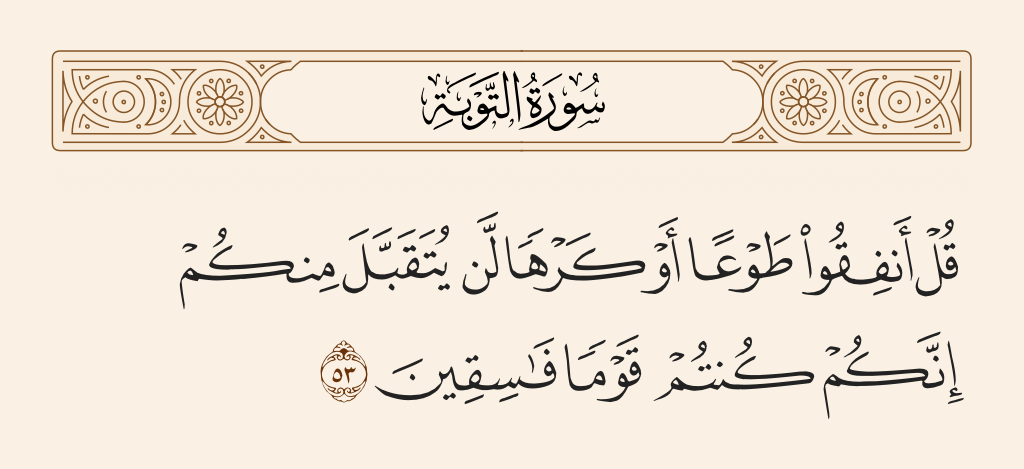 سُورَةُ التَّوْبَةِ
قُلْ أَنفِقُوا۟ طَوْعًا أَوْ كَرْهًا لَّن يُتَقَبَّلَ مِنكُمْ
إِنَّكُمْ كُنتُمْ قَوْمًا فَـٰسِقِينَ ٥٣